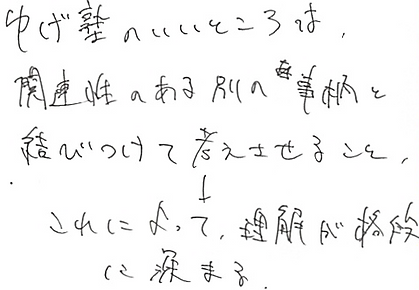 ゆげ塾のいいところは、
関連性のある別の事柄と
結びつけて考えさせること、
↓
これによって、理解が格段
に深まる.